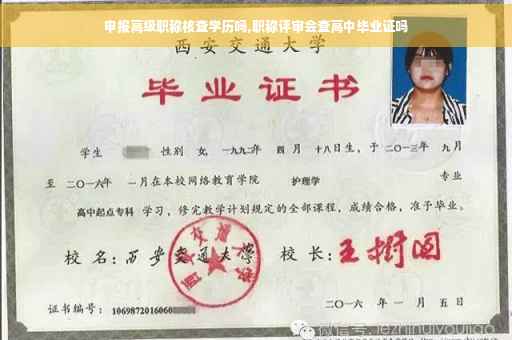 申报高级职称核查学历吗,职称评审会查高中毕业证吗
西安交通大学
毕业证书
学生 性别 女, 一九九二年 四月 十八日生, 于 二〇一三年 九月
至 二〇一六年 一月在本校网络教育学院 护理学 专业
高中起点专科 学习, 修完教学计划规定的全部课程, 成绩合格, 准予毕业。
校 名: 西安交通大学 校 长: 王树国
西安交通大学
证书编号: 1069872016060
二〇一六 年 一 月 五 日
微信号: jiezhihuiyoujiao